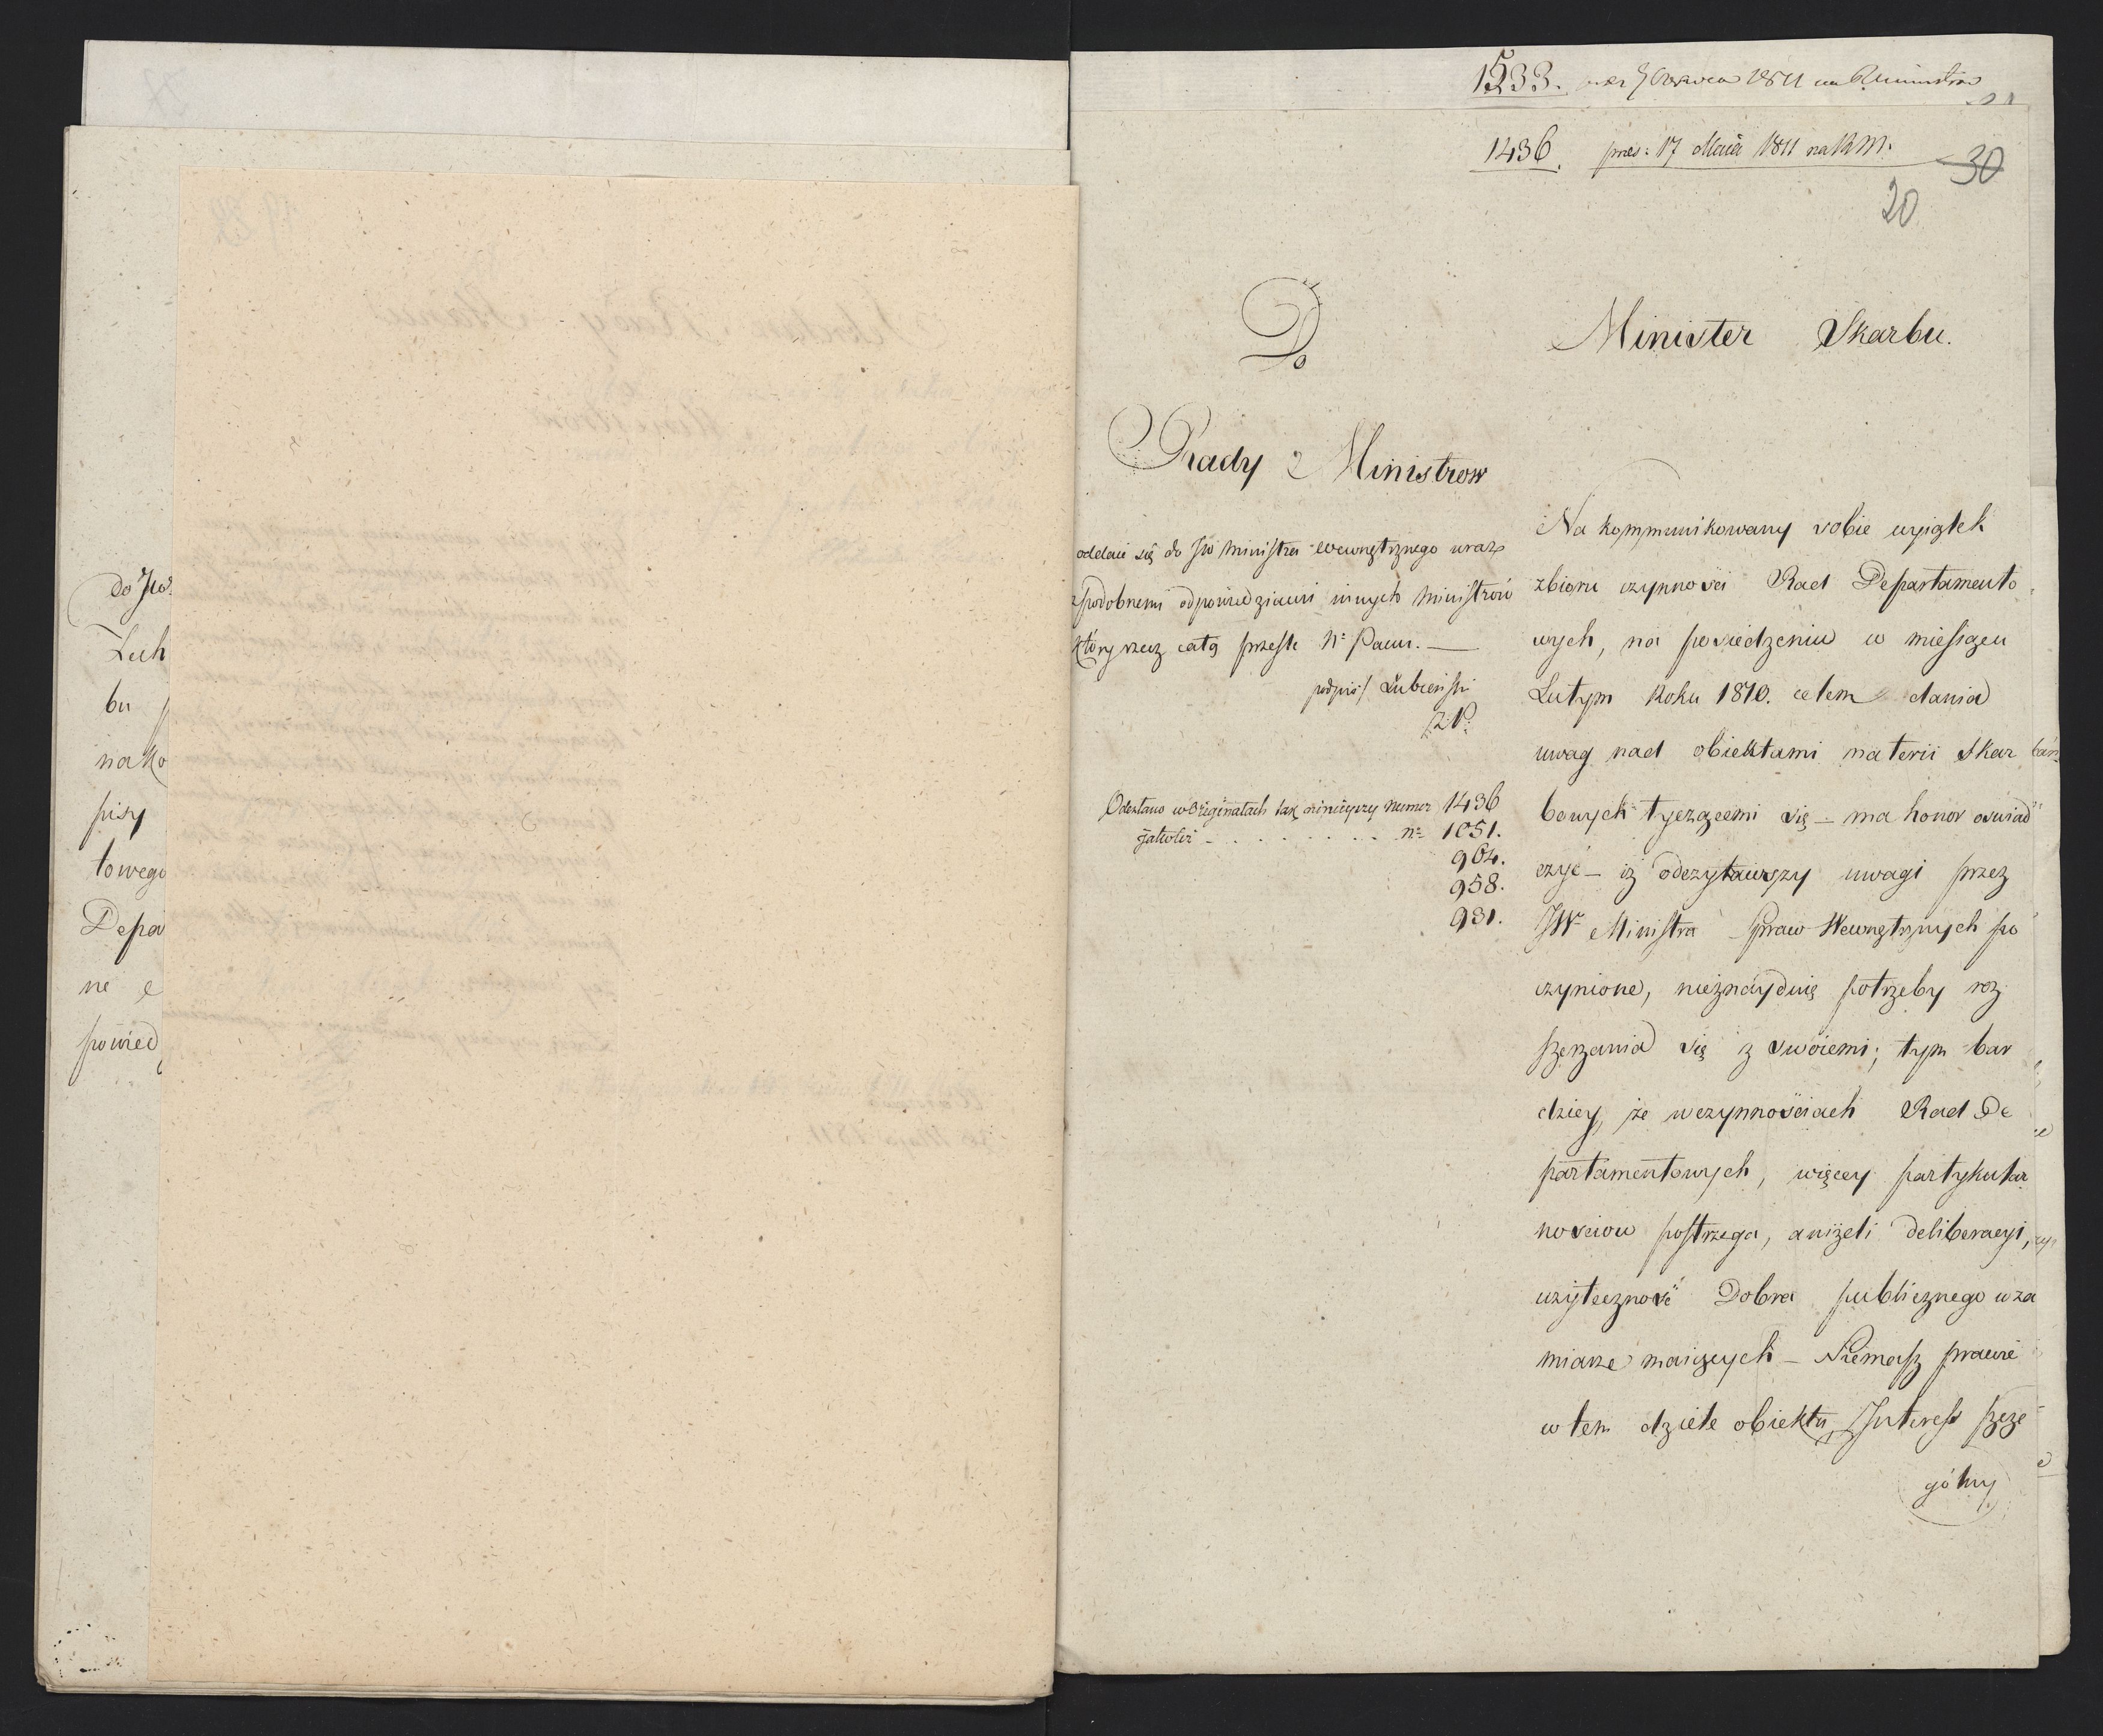 do JW
Lub
bu
na ko
pisy
towego
Depa
ne
powied
1533. Czerwca 1811 na R Ministrow
1436. pres: 17 Maia 1811 na RM.
30
20
Do
Rady Ministrow
oddaie się do JW Ministra Wewnętrznego wraz
z podobnemi odpowiedziami innych Ministrów
który rzecz całą przeszle
podpis/ Łubieński
Odesłano w Oryginałach tak ninieyszy numer 1436
jakoliż - . . . . . . . . nº 1051.
964.
958.
931.
Minister Skarbu.
Na kommunikowany sobie wyiątek
zbioru czynności Rad Departamento
wych, na posiedzeniu w miesiącu
Lutym Roku 1810. celem dania
uwag nad obiektami materii Skar
bowych tyczącemi się – ma honor oświad
czyć – iż odczytawszy uwagi przez
JW Ministra Spraw Wewnętrznych po
czynione, nieznayduię potrzeby roz
szerzania się z swoiemi; tym bar
dziey, że w czynnościach Rad De
partamentowych, więcey partykular
nosciow postrzega, aniżeli deliberacyi,
użyteczność Dobra publicznego w za
miarze maiących – Niemasz prawie
w tem dziele obiektu, Interess szcze
gólny